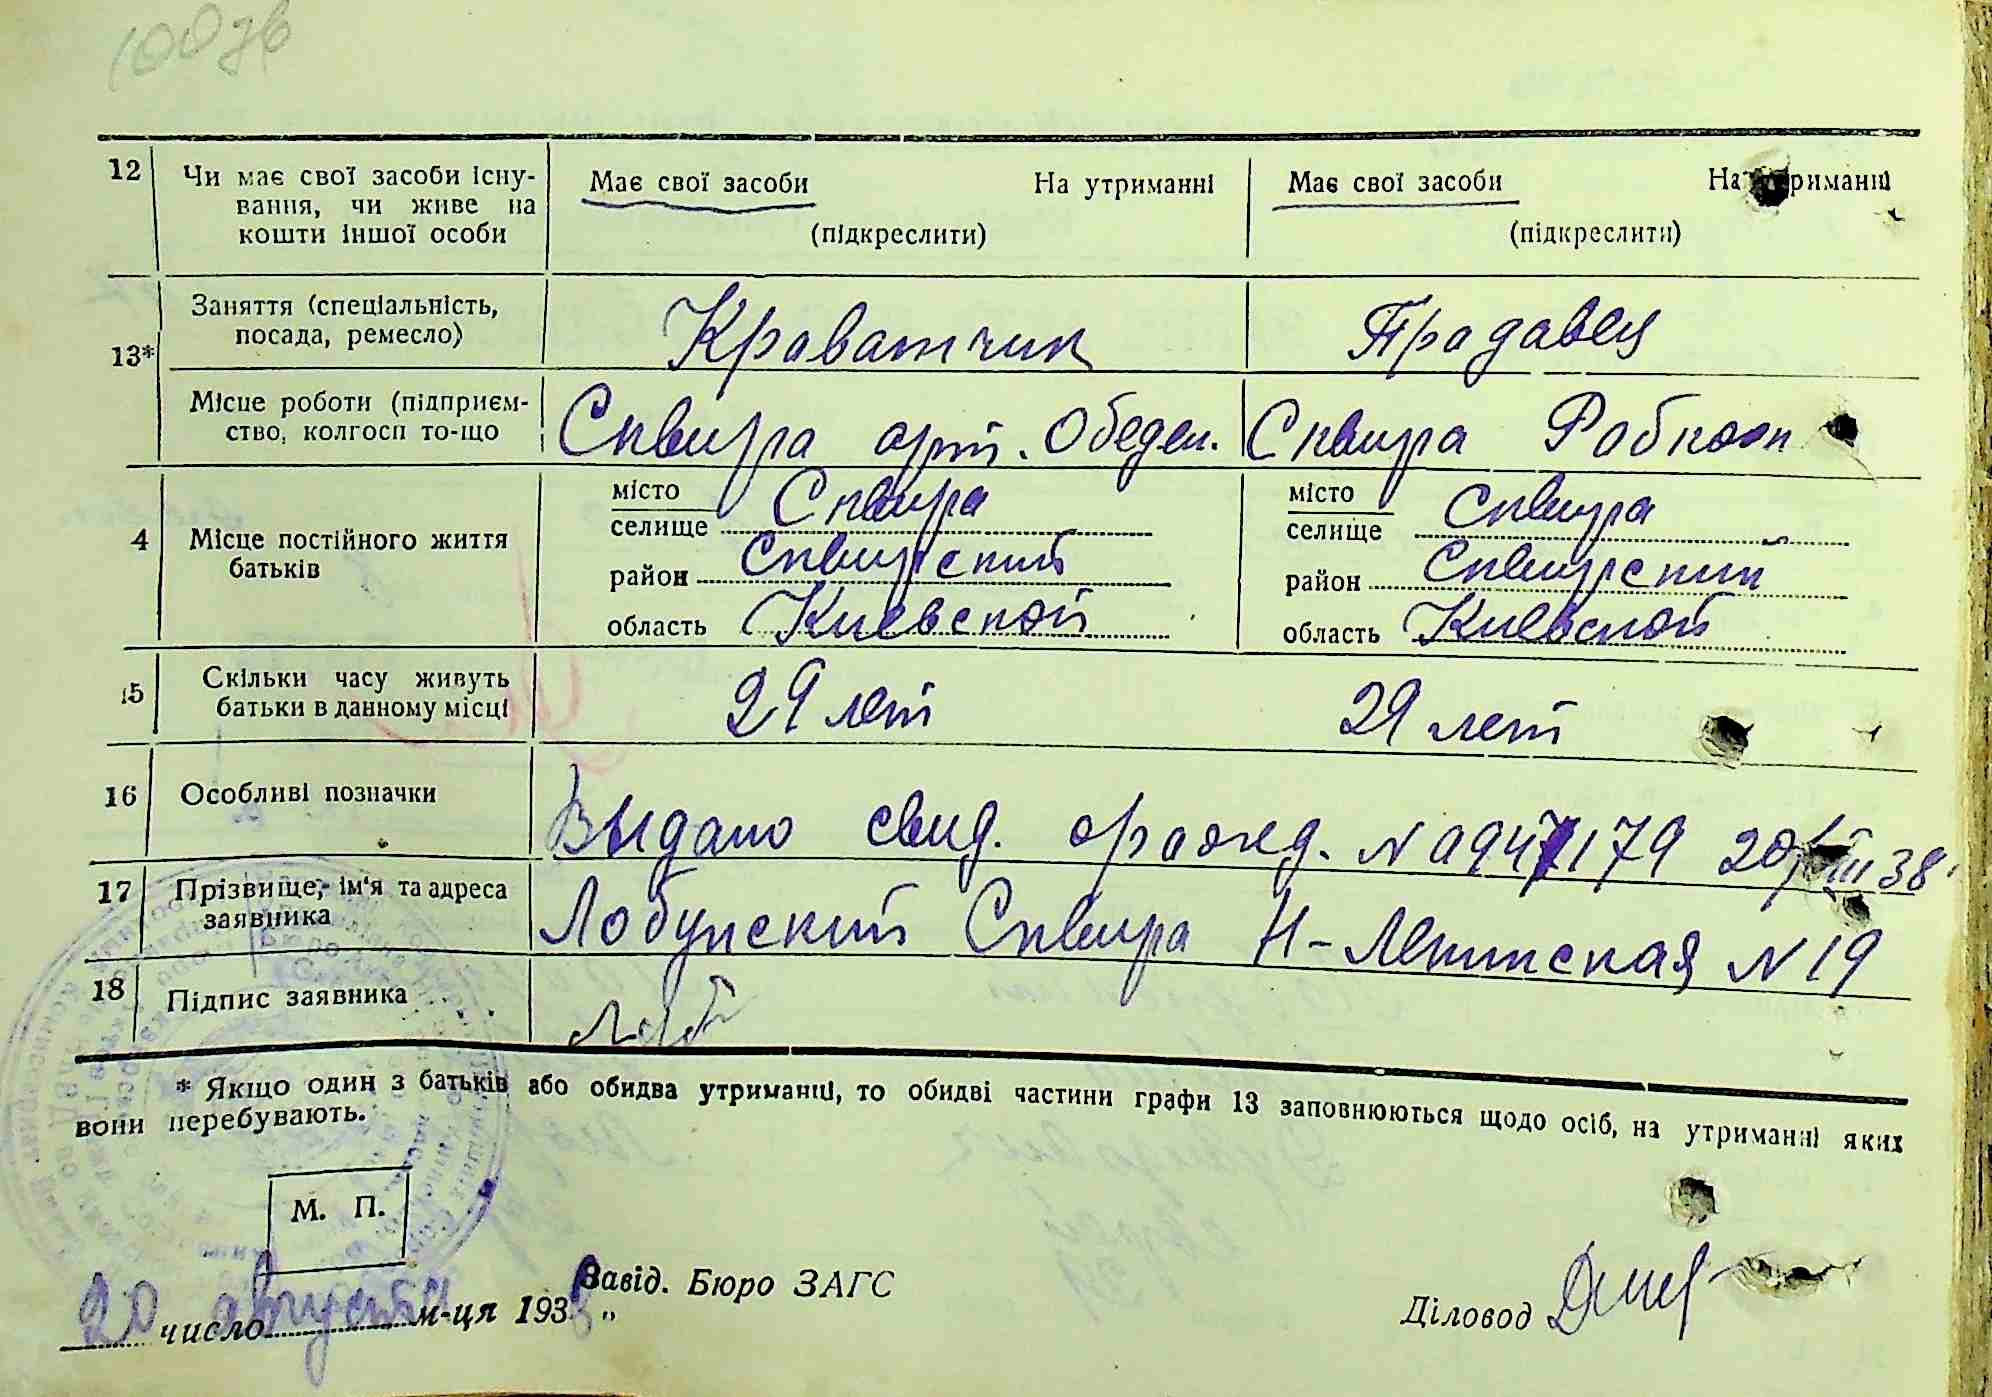 12 Чи має свої засоби існу- Має свої засоби На утриманні Має свої засоби На утриманні
вання, чи живе на
кошти іншої особи (підкреслити) (підкреслити)
Заняття (спеціальність,
посада, ремесло) Краватчик Прадавец
13*
Місце роботи (підприєм-
ство, колгосп то-що Сквира арт. Обеден. Сквира Робкооп
4 Місце постійного життя
батьків
місто
селище Сквира
район Сквирский
область Киевской
місто
селище Сквира
район Сквирский
область Киевской
15 Скільки часу живуть
батьки в данному місці 29 лет 29 лет
16 Особливі позначки Выдано свид. о ражд. N 0947179 20/VIII 38
17 Прізвище, ім'я та адреса
заявника Лобунский Сквира Н-Ленинская N 19
18 Підпис заявника Лоб
* Якщо один з батьків або обидва утриманці, то обидві частини графи 13 заповнюються щодо осіб, на утриманні яких
вони перебувають.
М. П.
20 число августа м-ця 1938 Завід. Бюро ЗАГС
Діловод